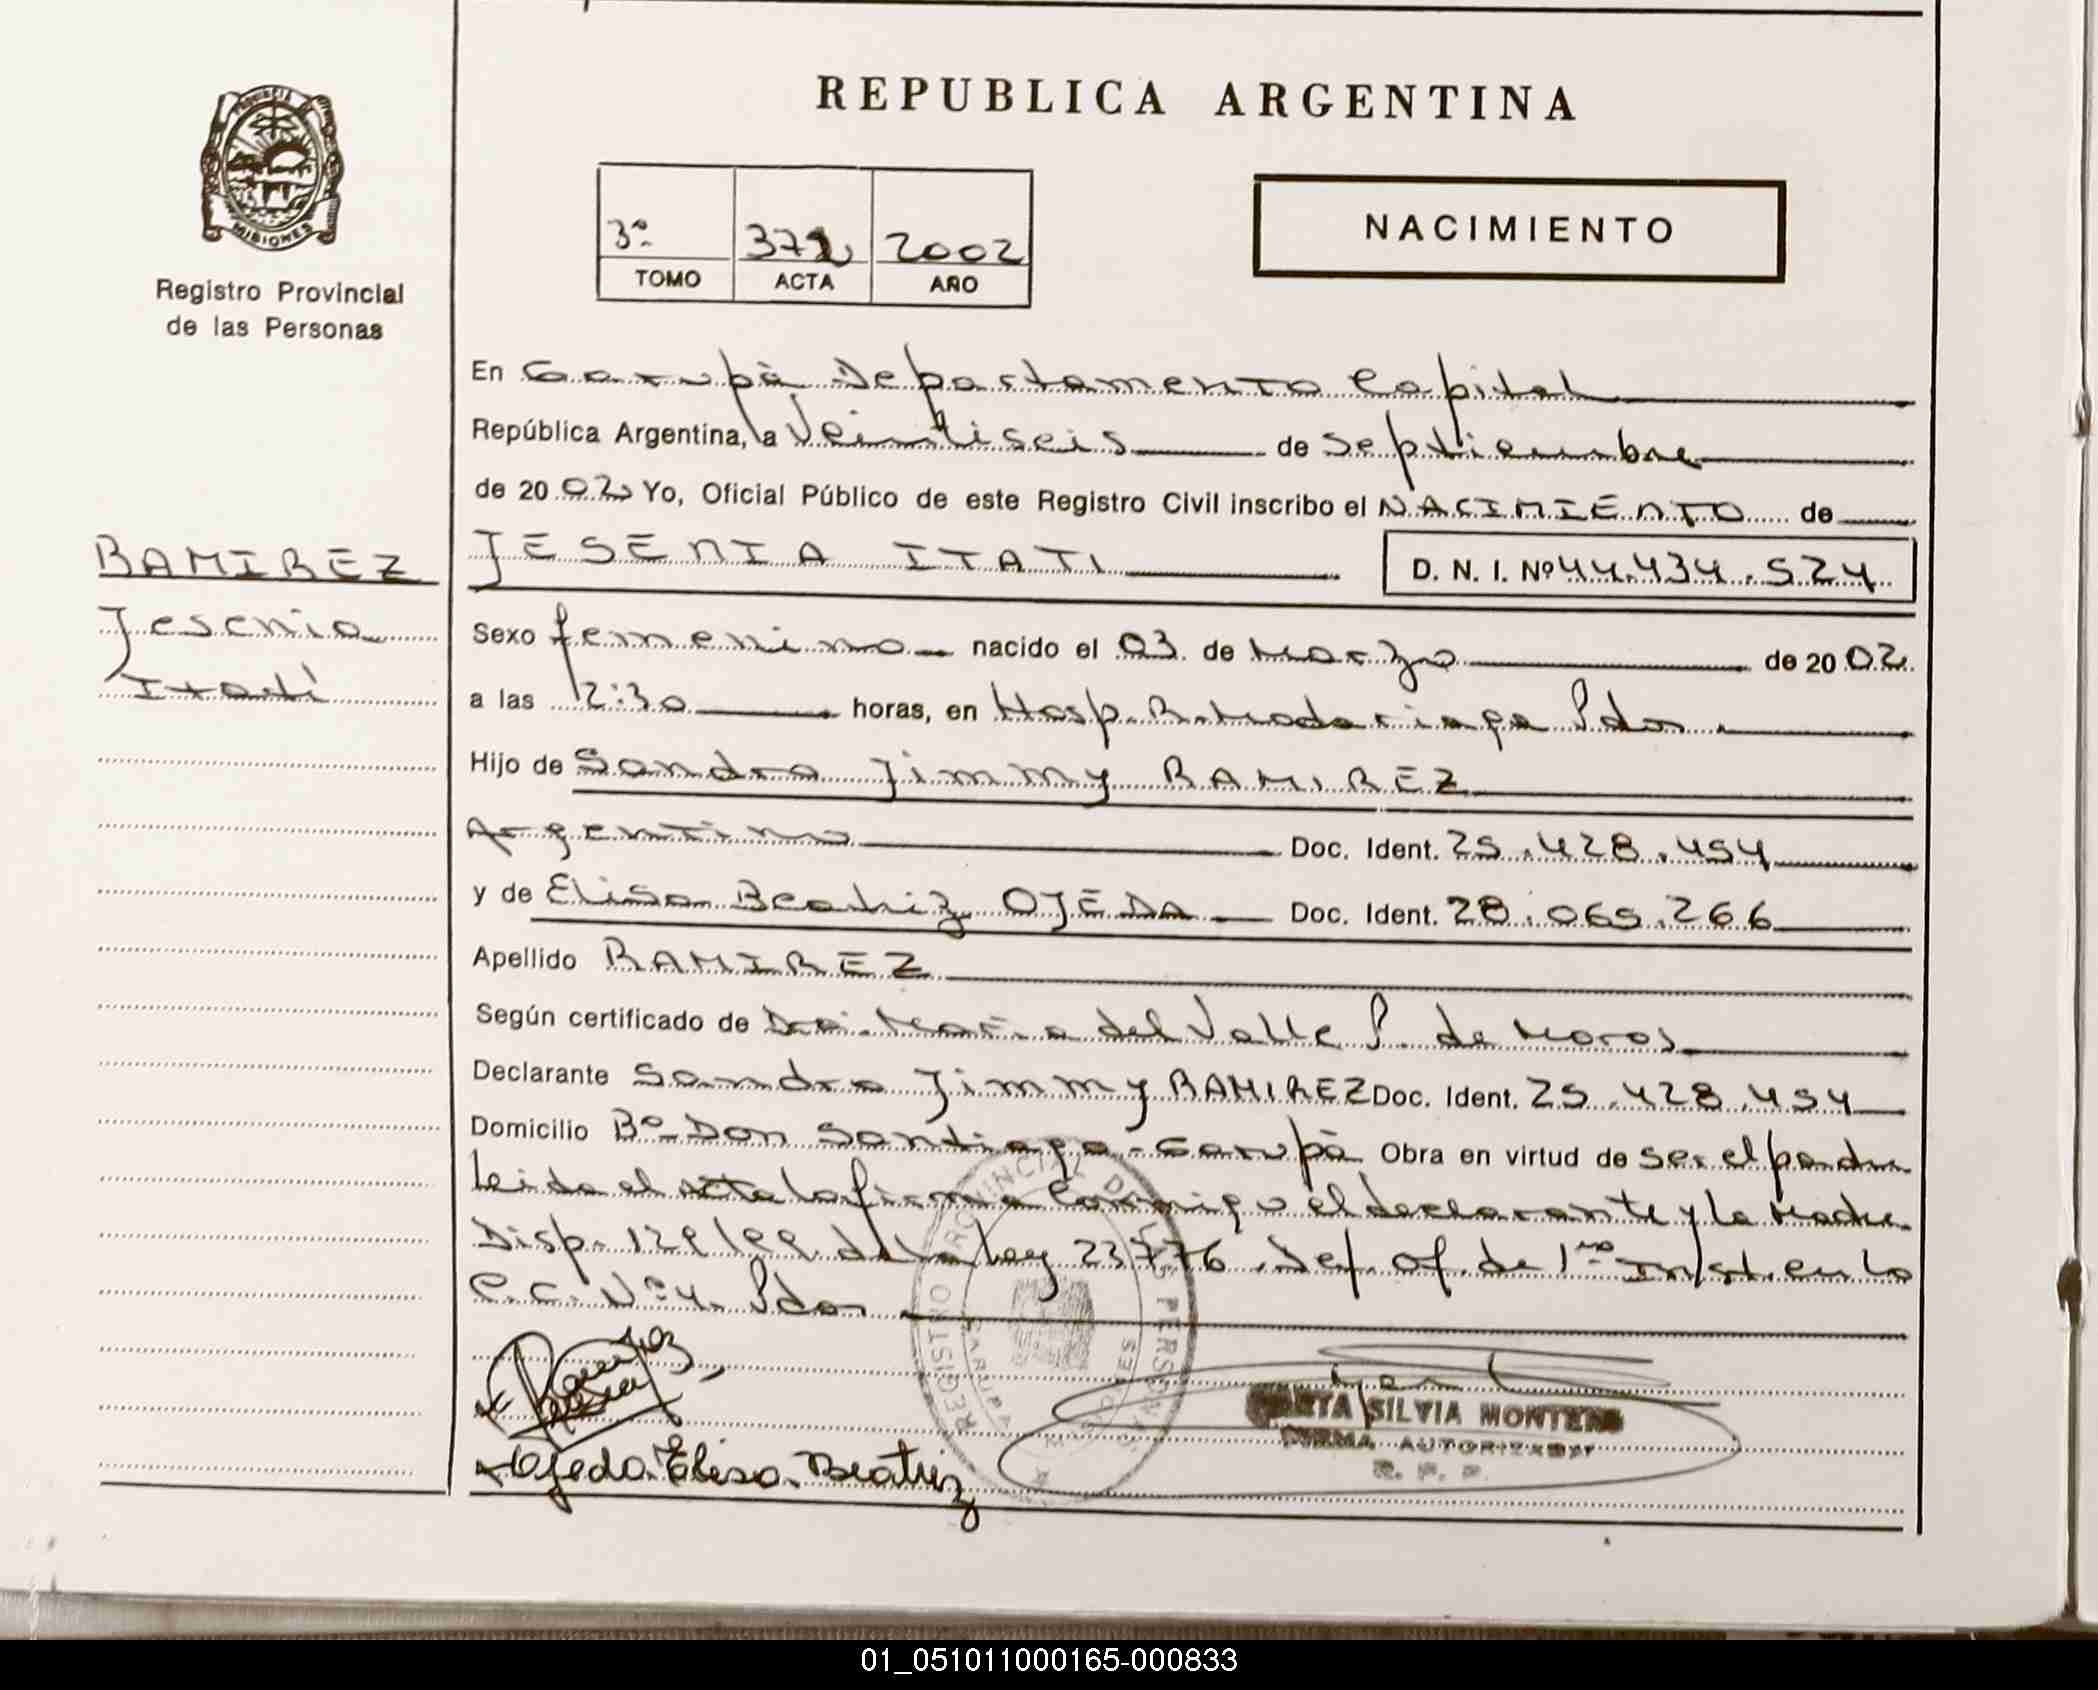 PROVINCIA
MISIONES
Registro Provincial
de las Personas
REPUBLICA ARGENTINA
3º 372 2002
TOMO ACTA AÑO
NACIMIENTO
RAMIREZ
Jesenia
Itatí
En Garupà Departamento Capital
República Argentina, a Veintiseis de Septiembre
de 2002 Yo, Oficial Público de este Registro Civil inscribo el NACIMIENTO de
JESENIA ITATI D. N. I. Nº 44.434.524
Sexo femenino nacido el 03 de Marzo de 2002
a las 12:30 horas, en Hosp. R. Madariaga Pdas
Hijo de Sandro Jimmy RAMIREZ
Argentino Doc. Ident. 25.428.454
y de Elisa Beatriz OJEDA Doc. Ident. 28.065.266
Apellido RAMIREZ
Según certificado de Dra. María del Valle P. de Moros
Declarante Sandro Jimmy RAMIREZ Doc. Ident. 25.428.454
Domicilio Bº Don Santiago - Garupà Obra en virtud de ser el padre
leida el acta la firma conmigo el declarante y la Madre
Disp. 129/99 de la Ley 23776. Def. Of. de 1ra Inst. en lo
C.C. Nº 4. Pdas
Ramirez
REGISTRO PROVINCIAL DE LAS PERSONAS
GARUPA
MISIONES
SILVIA MONTERO
FIRMA AUTORIZADA
R. P. P.
Ojeda Elisa Beatriz
01_051011000165-000833